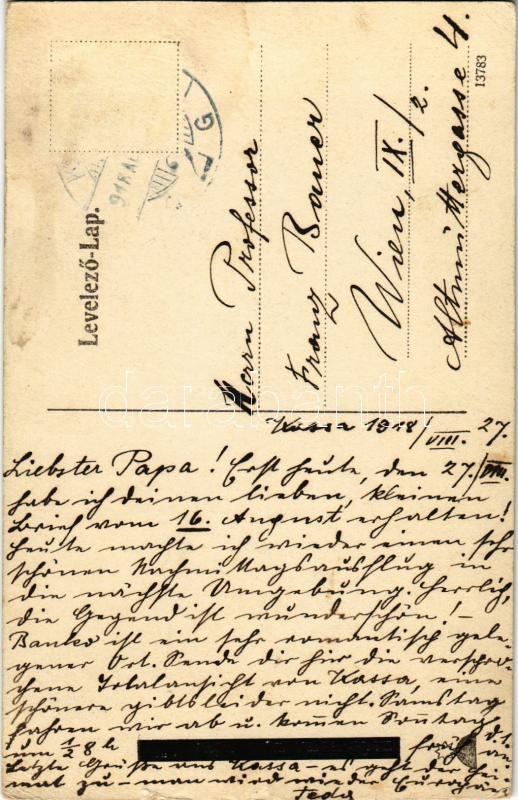 Levelező-Lap.
13783
Herrn Professor
Franz Bauer
Wien, IX./2.
Altmüttergasse 4.
darabanth
Kassa 1918/VIII. 27.
Liebster Papa! Erst heute, den 27./VIII.
habe ich deinen lieben, kleinen
Brief vom 16. August erhalten!
Heute machte ich wieder einen sehr
schönen Nachmittagsausflug in
die nächste Umgebung. Herrlich,
die Gegend ist wunderschön! –
Banko ist ein sehr romantisch gele-
gener Ort. Sende dir hier die verspro-
chene Totalansicht von Kassa, eine
schönere gibts leider nicht. Samstag
fahren wir ab u. kommen Sonntag
um 1/2 8 h früh an
Letzte Grüße aus Kassa – es geht der Hei-
mat zu – man wird wieder